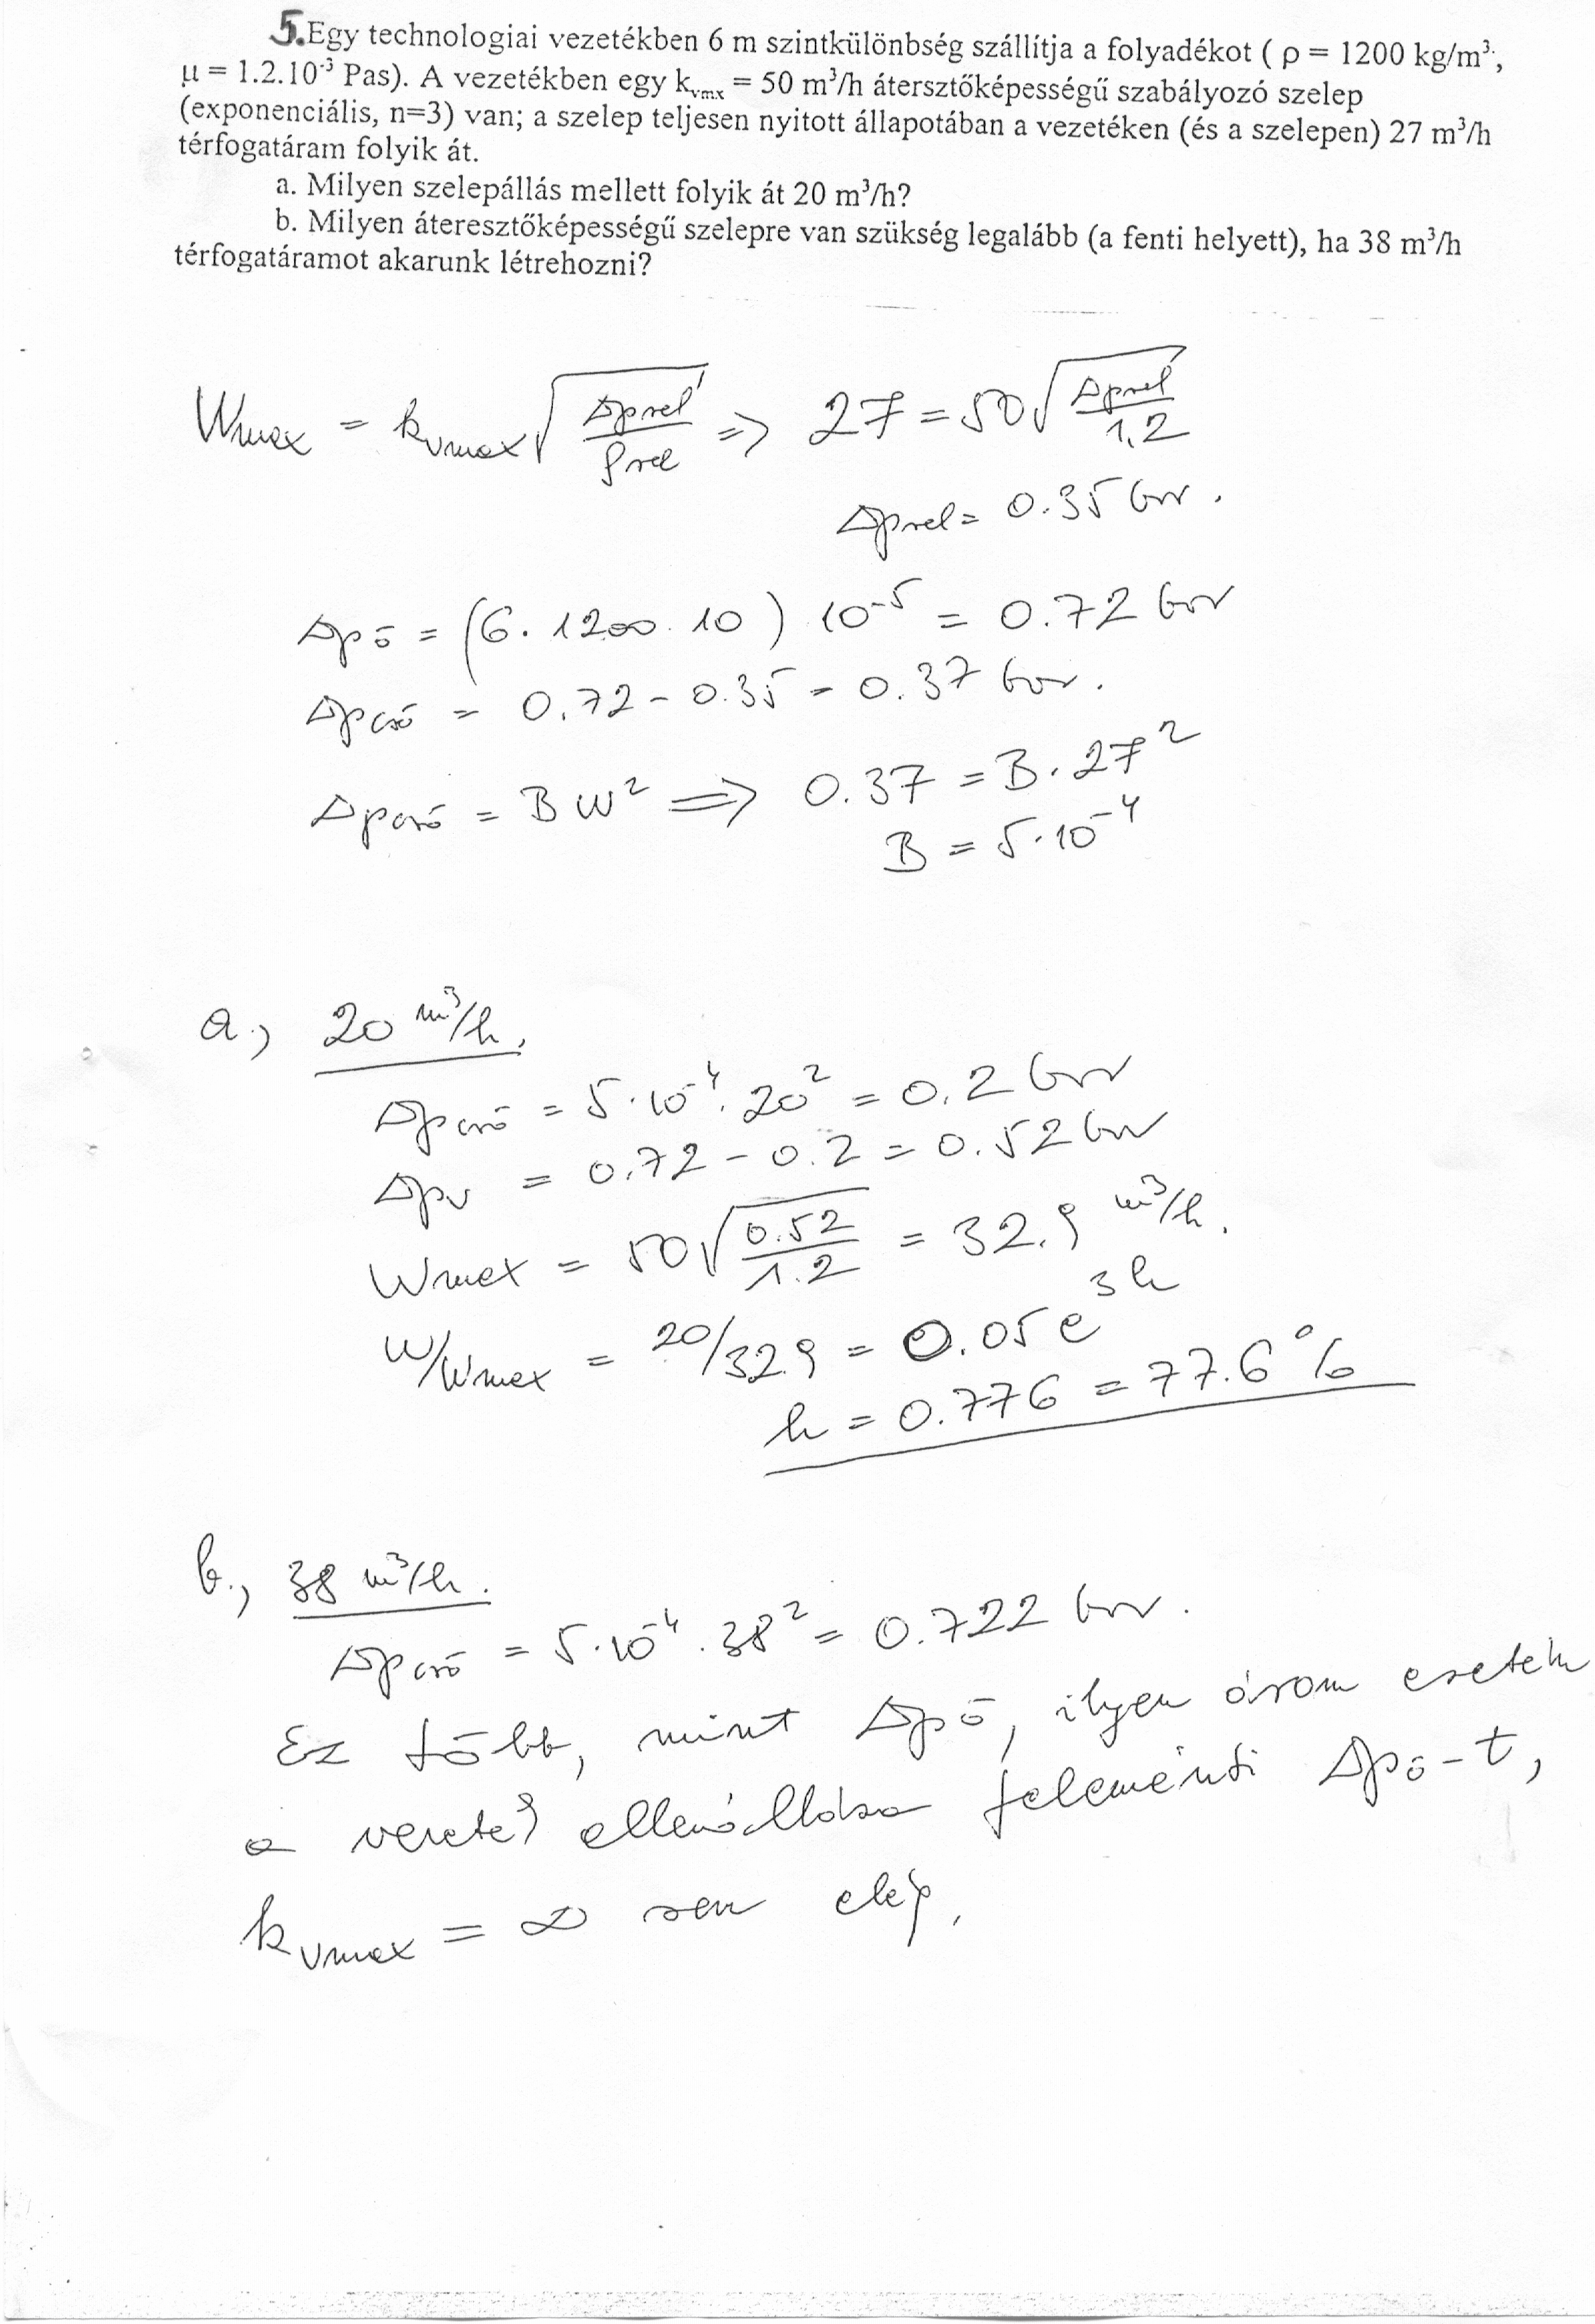 5. Egy technologiai vezetékben 6 m szintkülönbség szállítja a folyadékot ( ρ = 1200 kg/m³;
μ = 1.2.10⁻³ Pas). A vezetékben egy kᵥₘₓ = 50 m³/h átersztőképességű szabályozó szelep
(exponenciális, n=3) van; a szelep teljesen nyitott állapotában a vezetéken (és a szelepen) 27 m³/h
térfogatáram folyik át.
a. Milyen szelepállás mellett folyik át 20 m³/h?
b. Milyen áteresztőképességű szelepre van szükség legalább (a fenti helyett), ha 38 m³/h
térfogatáramot akarunk létrehozni?
Wmax = kvmax √(Δprel / ρrel) => 27 = 50 √(Δprel / 1,2)
Δprel = 0.35 bar.
Δpö = (6. 1200. 10) 10⁻⁵ = 0.72 bar
Δpcső = 0.72 - 0.35 = 0.37 bar.
Δpcső = B W² => 0.37 = B. 27²
B = 5·10⁻⁴
a., 20 m³/h.
Δpcső = 5·10⁻⁴. 20² = 0.2 bar
Δpv = 0.72 - 0.2 = 0.52 bar
Wmax = 50 √(0.52 / 1.2) = 32.9 m³/h.
W/Wmax = 20/32.9 = 0.05 e³ʰ
h = 0.776 = 77.6 %
b., 38 m³/h.
Δpcső = 5·10⁻⁴. 38² = 0.722 bar.
Ez több, mint Δpö, ilyen áram esetén
a vezeték ellenállása felemészti Δpö-t,
kvmax = ∞ sem elég.